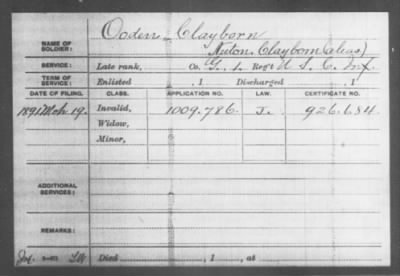 NAME OF SOLDIER: Ogden Clayborn
Clayborn (alias)
SERVICE: Late rank, Co. G, 1 Reg't U S C Inf.
TERM OF SERVICE: Enlisted , 1 Discharged , 1
DATE OF FILING. CLASS. APPLICATION NO. LAW. CERTIFICATE NO.
1891 Mch 19. Invalid, 1009.786. J. 926.684
Widow,
Minor,
ADDITIONAL SERVICES:
REMARKS:
Died , 1 , at